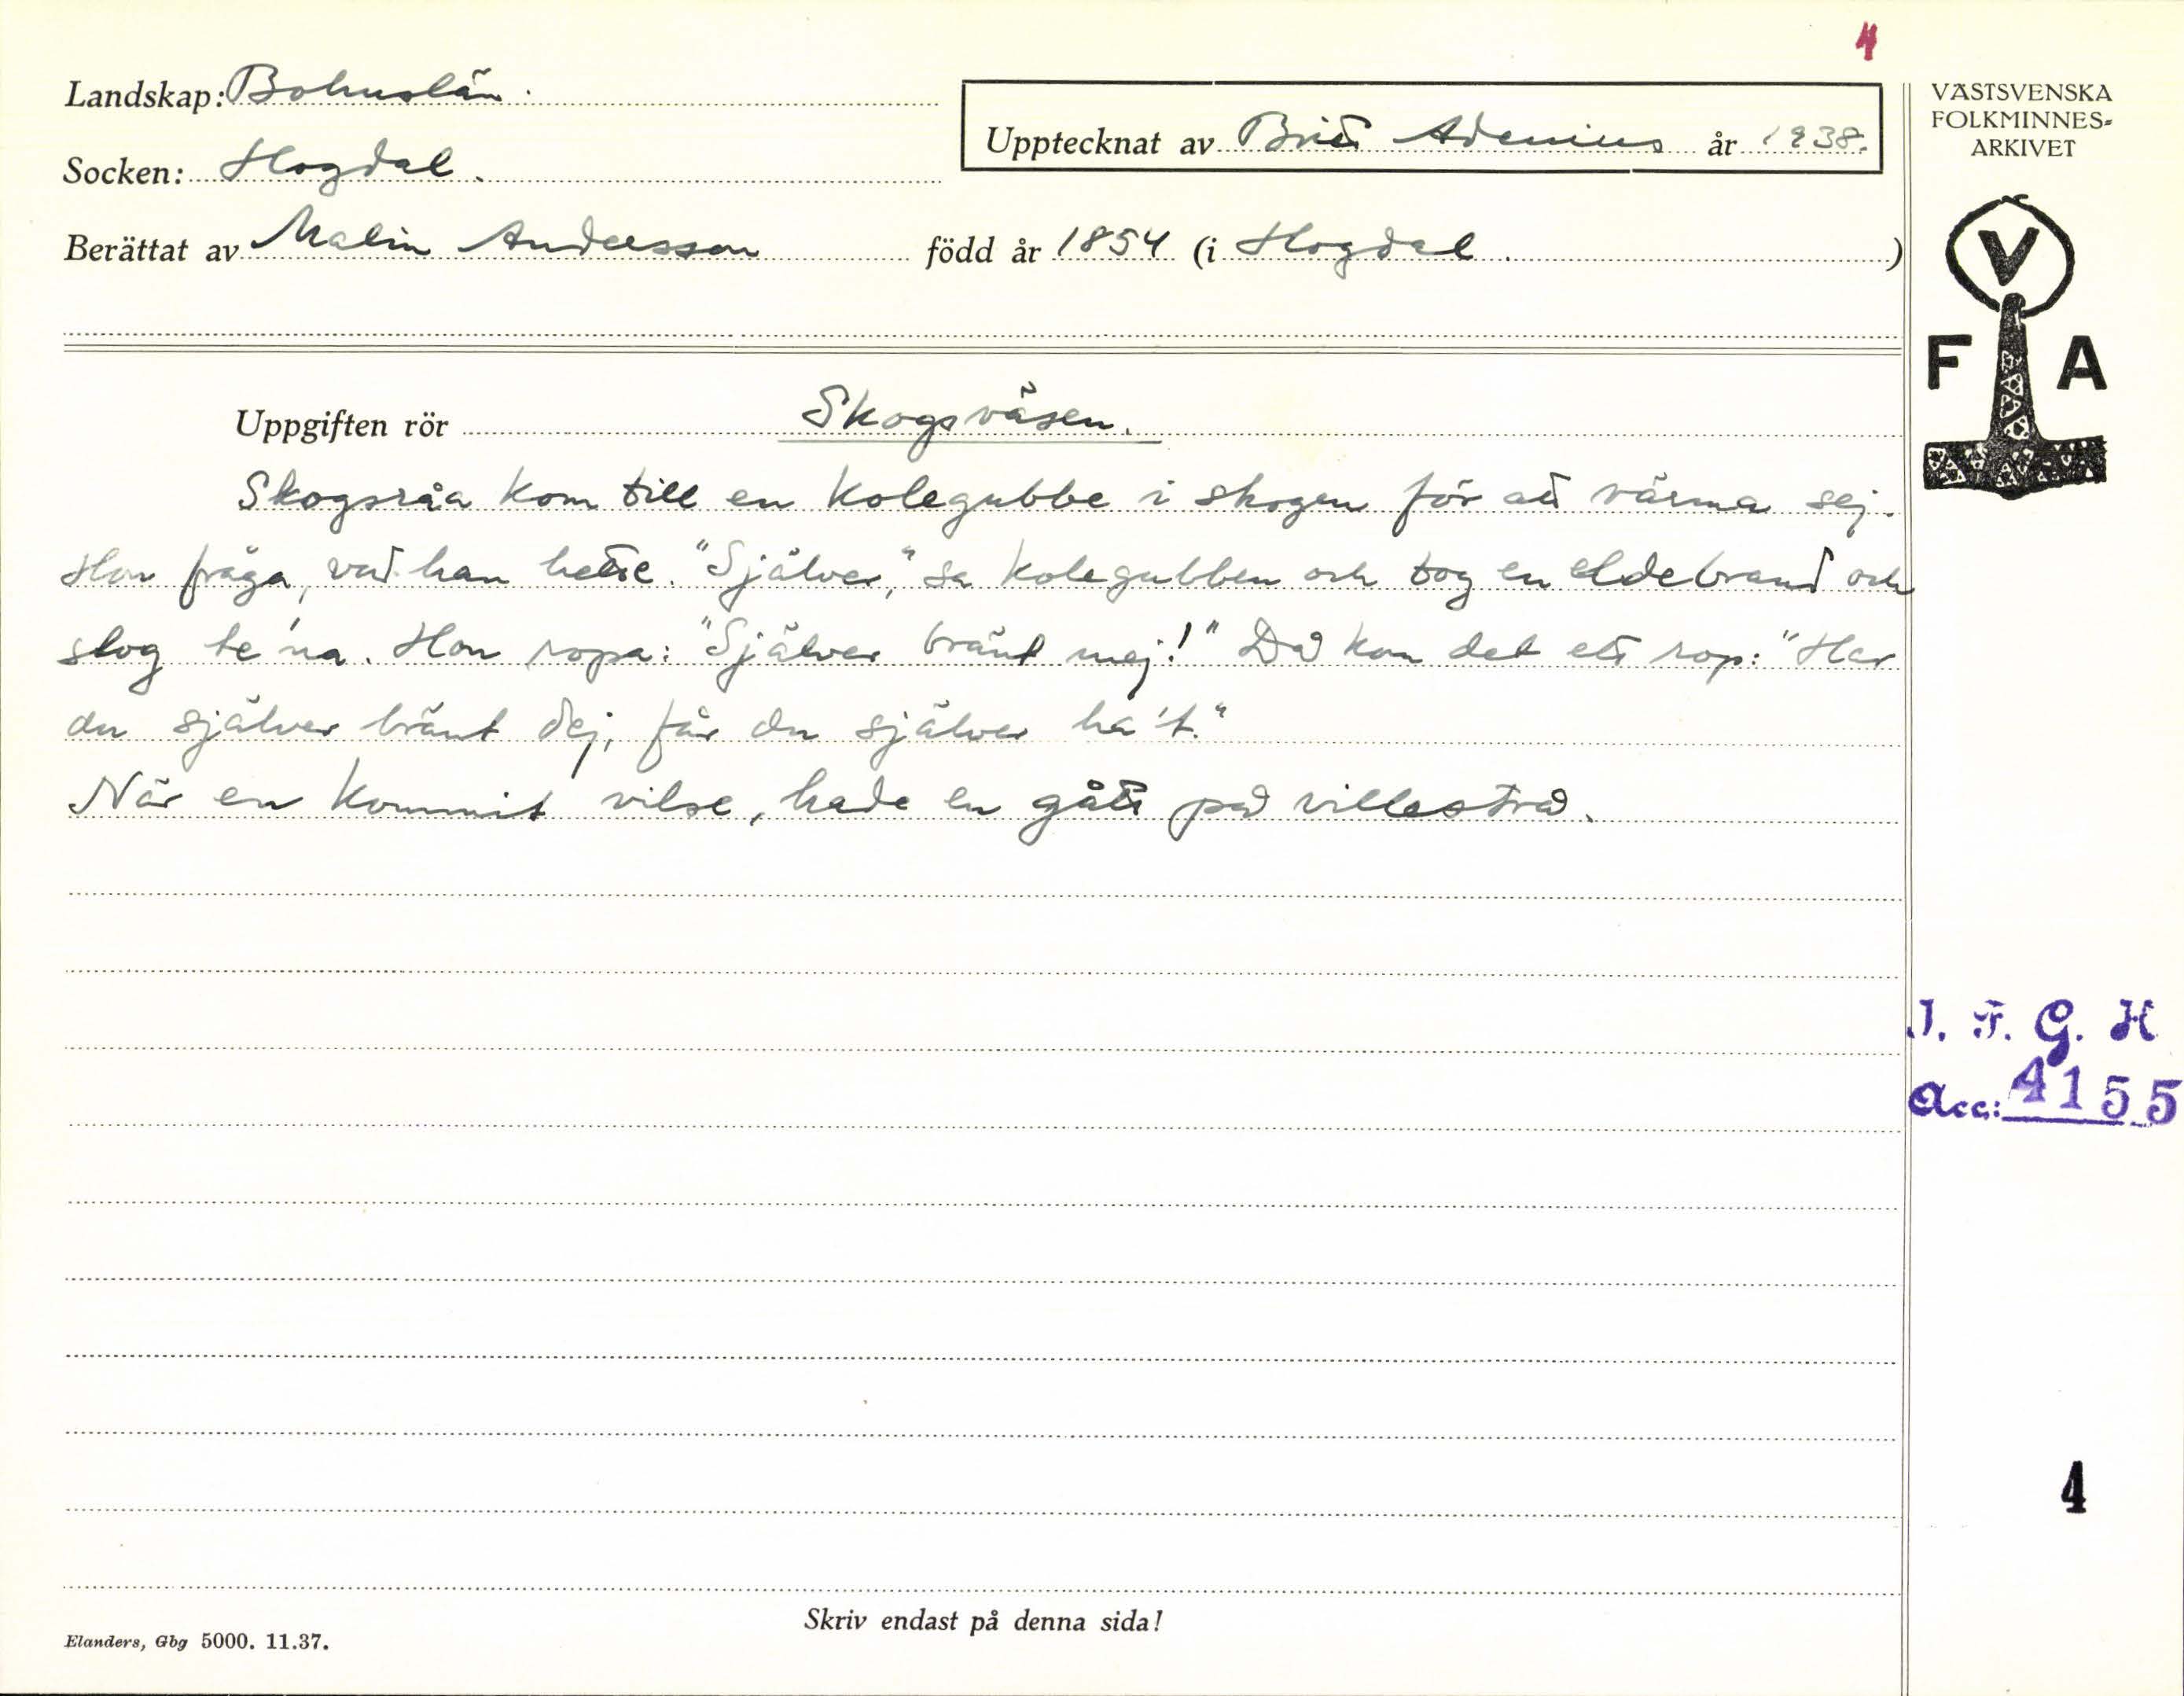 4
Landskap: Bohuslän.
Upptecknat av Britt Adenius år 1938.
Socken: Hogdal.
Berättat av Malin Andersson född år 1854 (i Hogdal. )
VÄSTSVENSKA
FOLKMINNES-
ARKIVET
V
F A
Uppgiften rör Skogsväsen.
Skogsråa kom till en kolegubbe i skogen för att värma sej.
Hon fråga, vad han hette. "Själver," sa kolegubben och tog en eldebrand och
slog te'na. Hon ropa: "Själver bränt mej!" Då kom det ett rop: "Har
du själver bränt dej, får du själver ha't."
När en kommit vilse, hade en gått på villestrå.
I. F. G. H
Acc: 4155
4
Skriv endast på denna sida!
Elanders, Gbg 5000. 11.37.